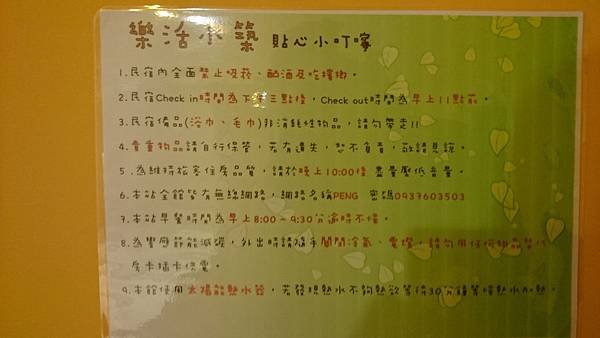 樂活小築 貼心小叮嚀
1.民宿內全面禁止吸菸、酗酒及吃檳榔。
2.民宿Check in時間為下午三點後，Check out時間為早上11點前。
3.民宿備品(浴巾、毛巾)非消耗性物品，請勿帶走!!
4.貴重物品請自行保管，若有遺失，恕不負責，敬請見諒。
5.為維持旅客住房品質，請於晚上10:00後 盡量壓低音量。
6.本站全館皆有無線網路，網路名稱PENG 密碼0937603503
7.本站早餐時間為早上8:00~9:30分逾時不候。
8.為響應節能減碳，外出時請隨手關閉冷氣、電燈，請勿用任何物品替代
房卡插卡供電。
9.本館使用太陽能熱水器，若發現熱水不夠熱敬等待30分鐘等候熱水加熱。